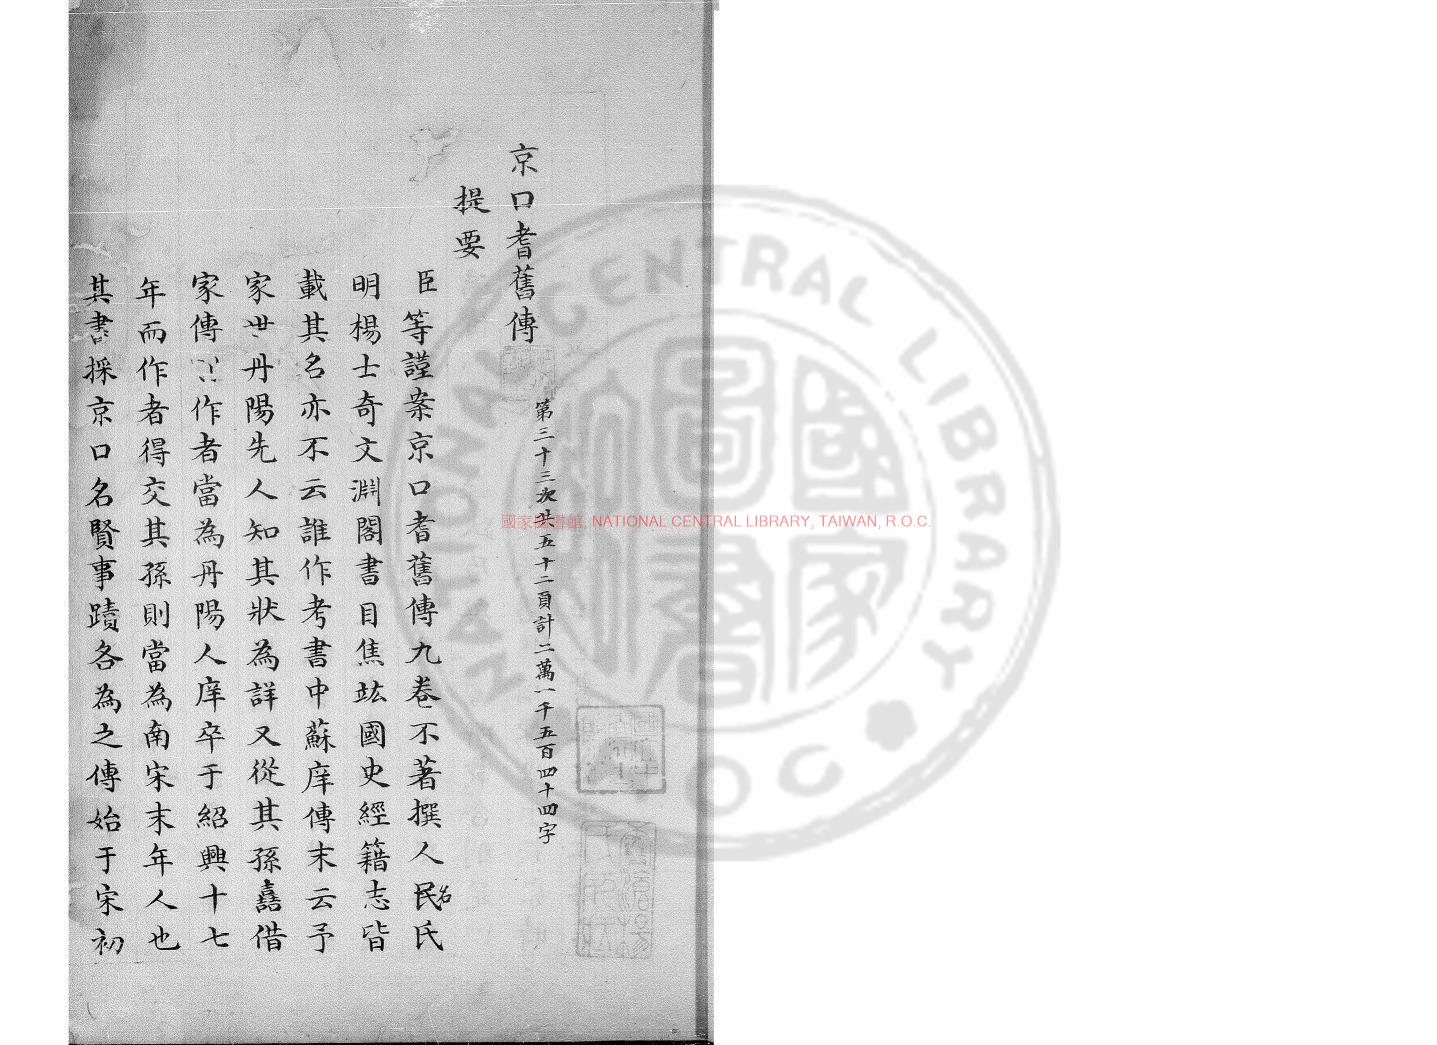 京口耆舊傳
第三十三次共五十二頁計二萬一千五百四十四字
提要
臣等謹案京口耆舊傳九卷不著撰人民名氏
明楊士奇文淵閣書目焦竑國史經籍志皆
載其名亦不云誰作考書中蘇庠傳末云予
家世丹陽先人知其狀為詳又從其孫嚞借
家傳作者當為丹陽人庠卒于紹興十七
年而作者得交其孫則當為南宋末年人也
其書採京口名賢事蹟各為之傳始于宋初
國家圖書館, NATIONAL CENTRAL LIBRARY, TAIWAN, R.O.C.
NATIONAL CENTRAL LIBRARY
R.O.C